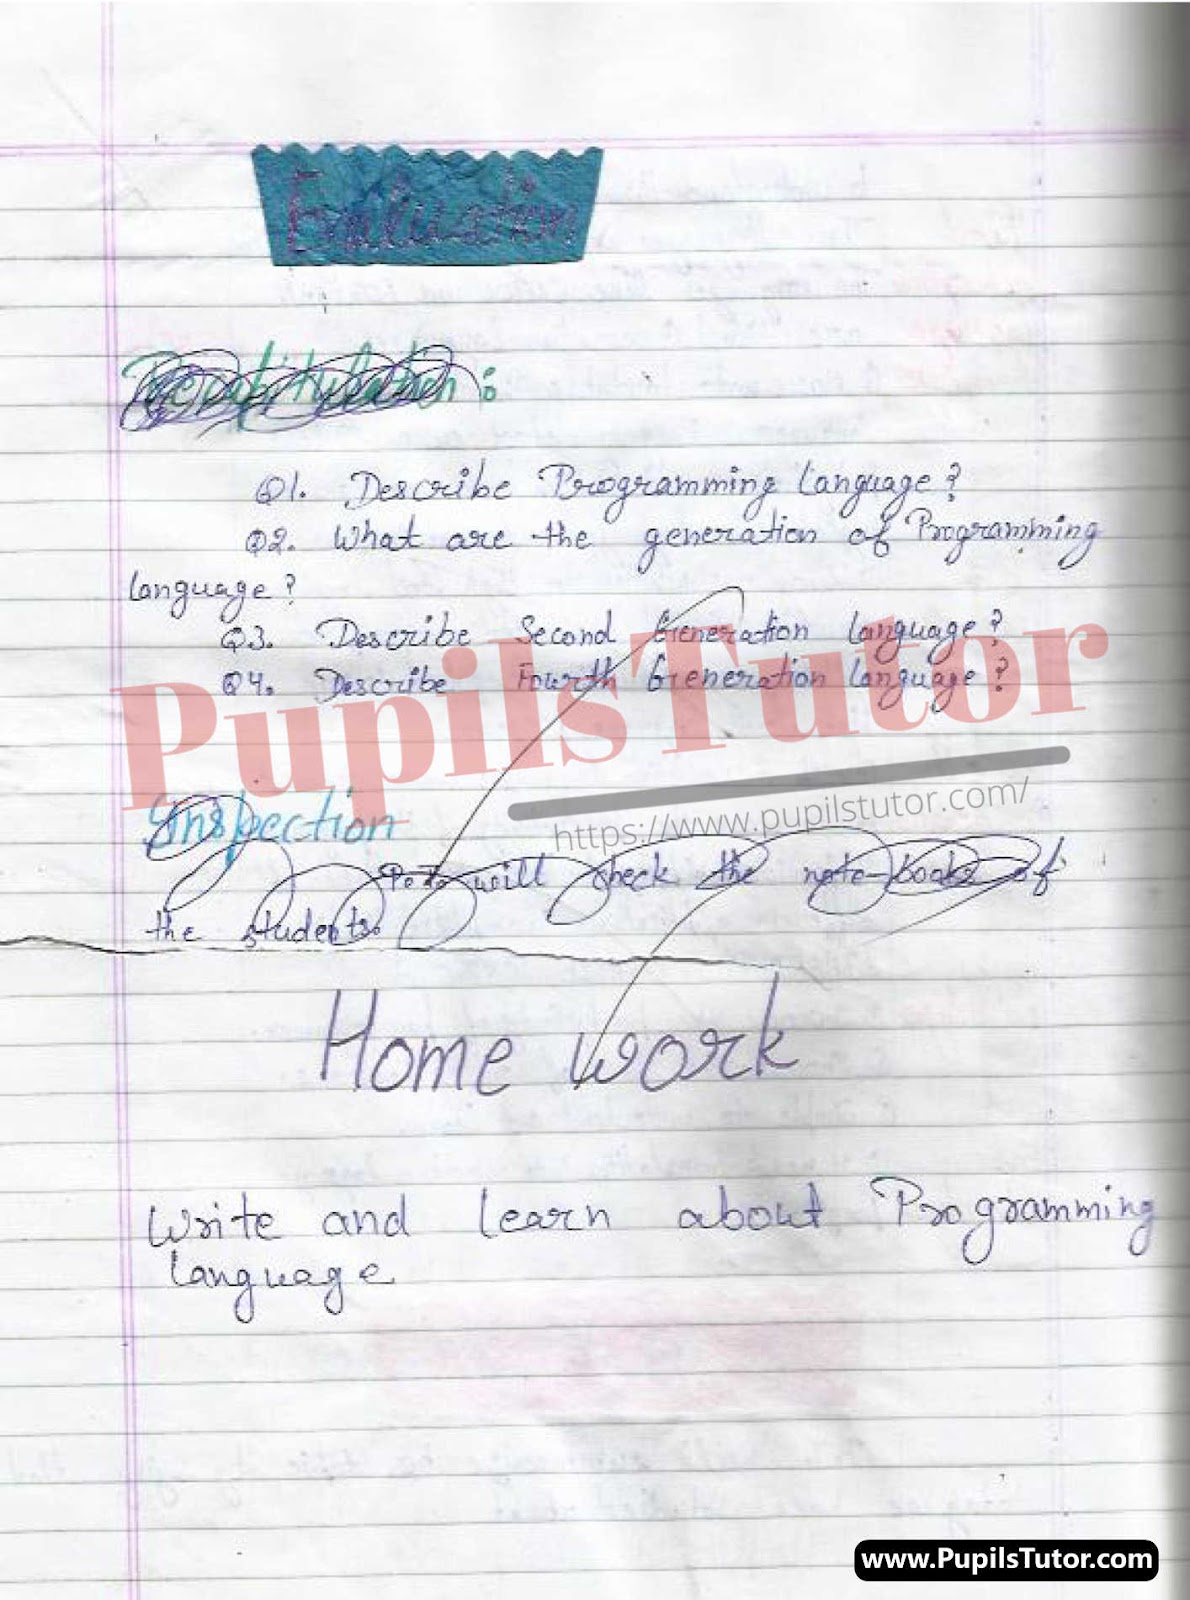 Evaluation
Recapitulation :
Q1. Describe Programming Language ?
Q2. What are the generation of Programming
language ?
Q3. Describe Second Generation Language ?
Q4. Describe Fourth Generation Language ?
PupilsTutor
https://www.pupilstutor.com/
Inspection
will check the note-books of
the students.
Home work
Write and learn about Programming
Language
www.PupilsTutor.com